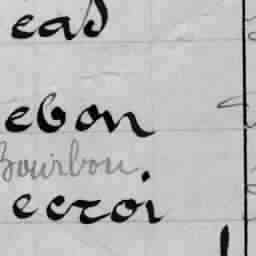 ead
ebon
Bourbon
ecroi